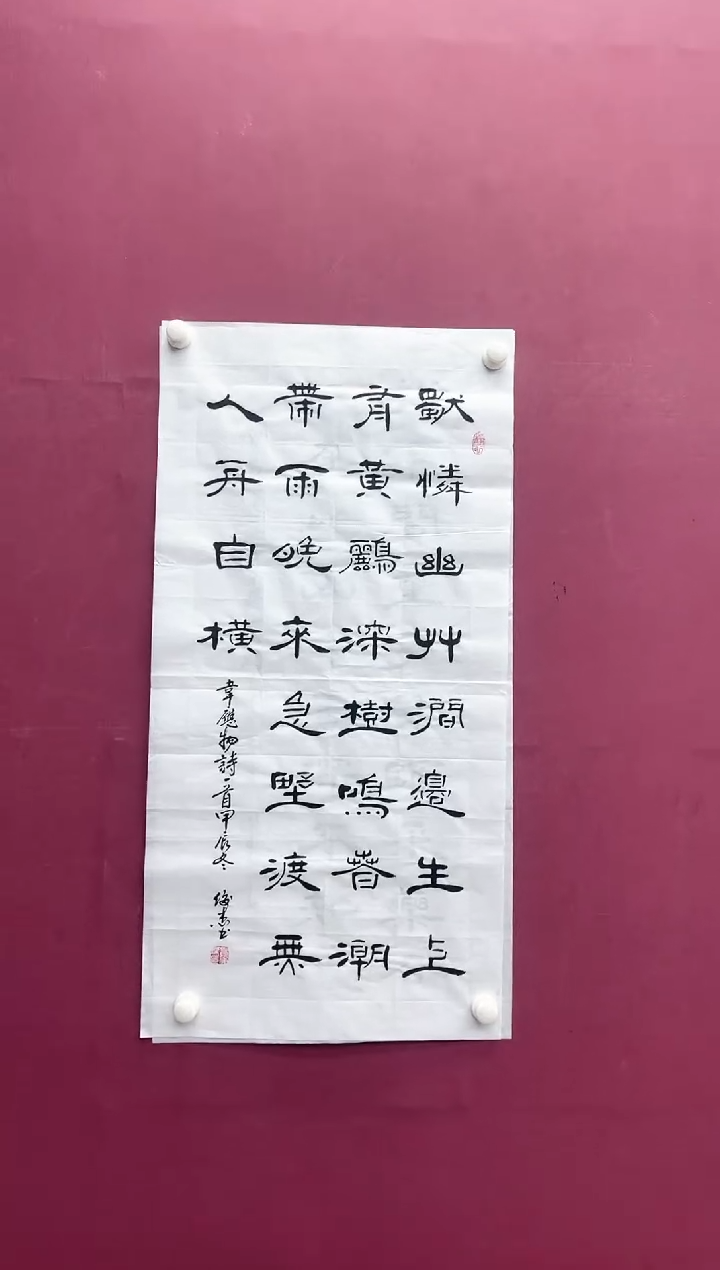 獨憐幽艸澗邊生上
有黃鸝深樹鳴春潮
帶雨晚來急野渡無
人舟自橫
韋應物詩一首甲辰冬